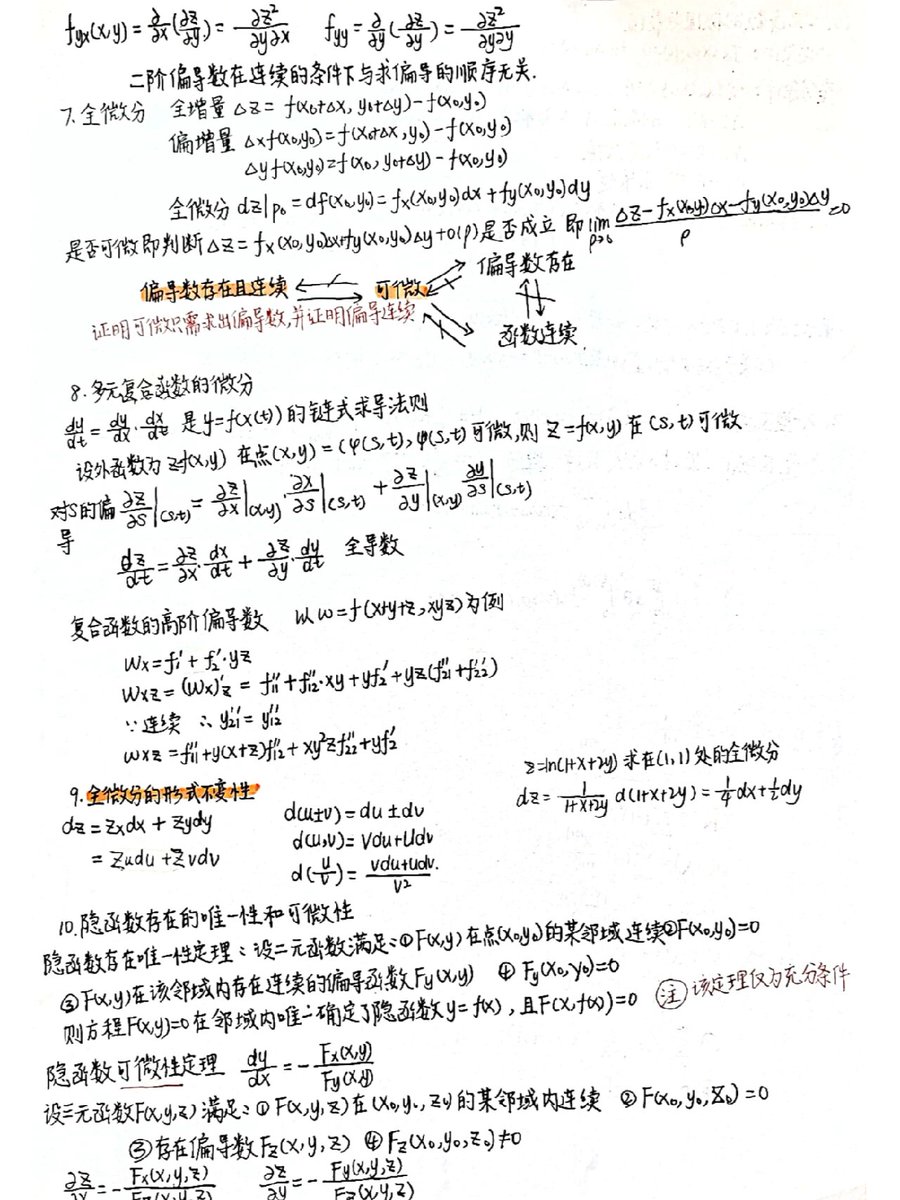 fyx(x,y) = ∂/∂x(∂z/∂y) = ∂z²/∂y∂x fyy = ∂/∂y(∂z/∂y) = ∂z²/∂y∂y
二阶偏导数在连续的条件下与求偏导的顺序无关.
7.全微分 全增量 Δz = f(x₀+Δx, y₀+Δy) - f(x₀,y₀)
偏增量 Δxf(x₀,y₀) = f(x₀+Δx, y₀) - f(x₀,y₀)
Δyf(x₀,y₀) = f(x₀, y₀+Δy) - f(x₀,y₀)
全微分 dz|p₀ = df(x₀,y₀) = fx(x₀,y₀)dx + fy(x₀,y₀)dy
是否可微即判断 Δz = fx(x₀,y₀)Δx+fy(x₀,y₀)Δy+o(ρ) 是否成立 即 lim ρ→0 (Δz - fx(x₀,y₀)Δx - fy(x₀,y₀)Δy)/ρ =0
偏导数存在
偏导数存在且连续 可微
证明可微只需求出偏导数,并证明偏导连续
函数连续.
8.多元复合函数的微分
dy/dt = dy/dx · dx/dt 是 y=f(x(t)) 的链式求导法则
设外函数为 z=f(x,y) 在点(x,y) = (φ(s,t), ψ(s,t) 可微,则 z=f(x,y) 在(s,t)可微
对s的偏导 ∂z/∂s|(s,t) = ∂z/∂x|(x,y) · ∂x/∂s|(s,t) + ∂z/∂y|(x,y) · ∂y/∂s|(s,t)
dz/dt = ∂z/∂x · dx/dt + ∂z/∂y · dy/dt 全导数
复合函数的高阶偏导数 以 w=f(x+y+z, xyz) 为例
Wx = f₁' + f₂'·yz
Wxz = (Wx)'z = f₁₁'' + f₁₂''·xy + yf₂' + yz(f₂₁'' + f₂₂'')
∵连续 ∴ y₂₁'' = y₁₂''
wxz = f₁₁'' + y(x+z)f₁₂'' + xy²zf₂₂'' + yf₂'
z=ln(1+x+2y) 求在(1,1)处的全微分
dz = 1/(1+x+2y) d(1+x+2y) = 1/4dx+1/2dy
9.全微分的形式不变性
dz = Zxdx + Zydy
= Zudu + Zvdv
d(u±v) = du ± dv
d(u,v) = vdu+udv
d(u/v) = (vdu+udv)/v²
10.隐函数存在的唯一性和可微性
隐函数存在唯一性定理: 设二元函数满足:①F(x,y)在点(x₀,y₀)的某邻域连续②F(x₀,y₀)=0
③F(x,y)在该邻域内存在连续的偏导函数Fy(x,y) ④ Fy(x₀,y₀)=0
则方程F(x,y)=0在邻域内唯一确定了隐函数y=f(x), 且F(x,f(x))=0 注 该定理仅为充分条件
隐函数可微性定理 dy/dx = -Fx(x,y)/Fy(x,y)
设三元函数F(x,y,z)满足:① F(x,y,z)在(x₀,y₀,zy)的某邻域内连续 ② F(x₀,y₀,z₀)=0
③存在偏导数Fz(x,y,z) ④ Fz(x₀,y₀,z₀)≠0
∂z/∂x = -Fx(x,y,z)/Fz(x,y,z) ∂z/∂y = -Fy(x,y,z)/Fz(x,y,z)